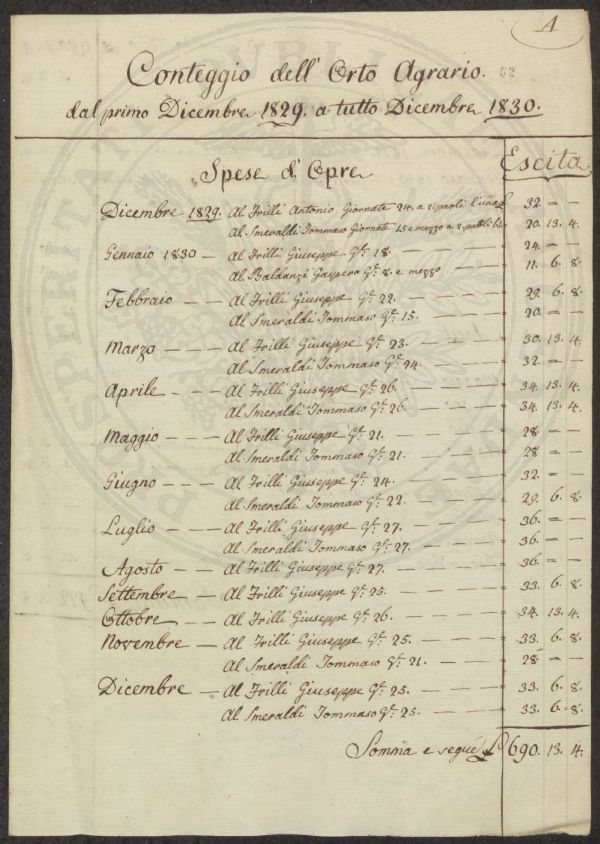 A
Conteggio dell' Orto Agrario. 52
dal primo Dicembre 1829. a tutto Dicembre 1830.
Spese d' Opre Escita
Dicembre 1829. Al Frilli Antonio Giornate 24. a 2 paoli l'una £ 32. = =
Al Smeraldi Tommaso Giornate 15 e mezzo a 2. paoli 20. 13. 4.
Gennaio 1830 — Al Frilli Giuseppe Gte. 18. 24. = =
Al Baldanzi Gaspero Gte. 8 e mezzo 11. 6. 8.
Febbraio — — Al Frilli Giuseppe Gte. 22. 29. 6. 8.
Al Smeraldi Tommaso Gte. 15. 20. = =
Marzo — — — Al Frilli Giuseppe Gte. 23. 30. 13. 4.
Al Smeraldi Tommaso Gte. 24. 32. = =
Aprile — — — Al Frilli Giuseppe Gte. 26. 34. 13. 4.
Al Smeraldi Tommaso Gte. 26. 34. 13. 4.
Maggio — — — Al Frilli Giuseppe Gte. 21. 28. = =
Al Smeraldi Tommaso Gte. 21. 28 = =
Giugno — — — Al Frilli Giuseppe Gte. 24. 32. = =
Al Smeraldi Tommaso Gte. 22. 29. 6. 8.
Luglio — — — Al Frilli Giuseppe Gte. 27. 36. = =
Al Smeraldi Tommaso Gte. 27. 36. = =
Agosto — — Al Frilli Giuseppe Gte. 27. 36. = =
Settembre — — Al Frilli Giuseppe Gte. 25. 33. 6. 8.
Ottobre — — — Al Frilli Giuseppe Gte. 26. 34. 13. 4.
Novembre — — Al Frilli Giuseppe Gte. 25. 33. 6. 8.
Al Smeraldi Tommaso Gte. 21. 28. = =
Dicembre — Al Frilli Giuseppe Gte. 25. 33. 6. 8.
Al Smeraldi Tommaso Gte. 25. 33. 6. 8.
Somma e segue £ 690. 13. 4.